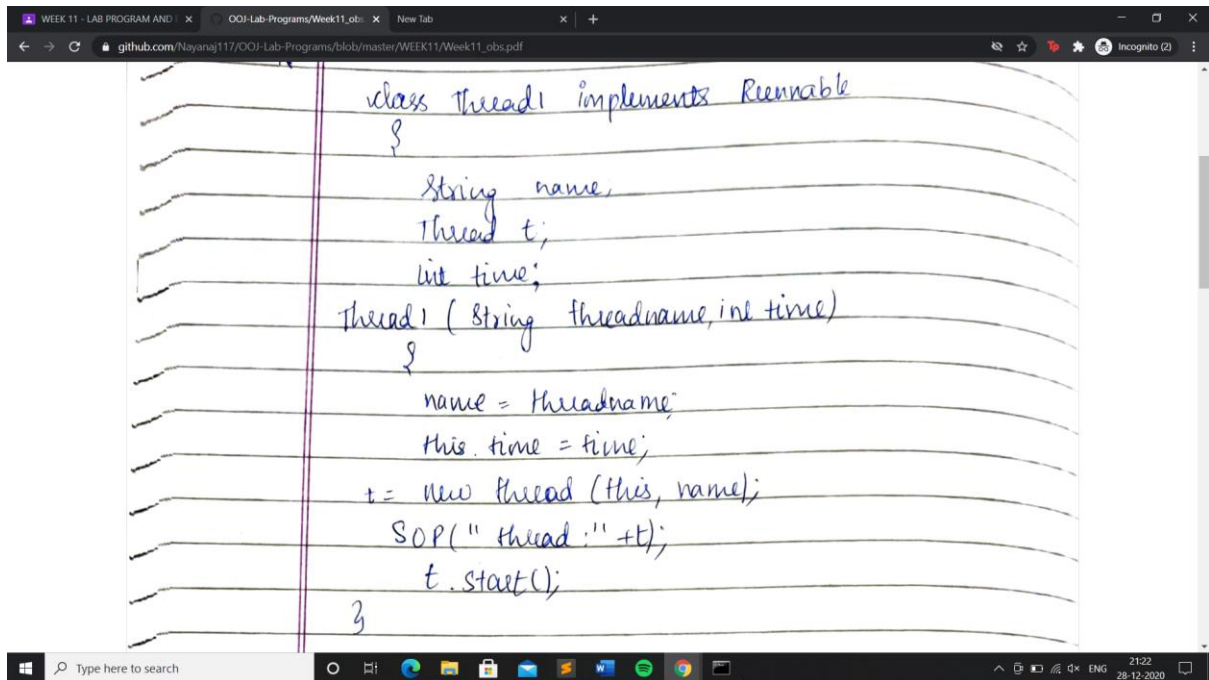 WEEK 11 - LAB PROGRAM AND
OOJ-Lab-Programs/Week11_obs
New Tab
github.com/Nayanaj117/OOJ-Lab-Programs/blob/master/WEEK11/Week11_obs.pdf
Incognito (2)
class Thread1 implements Runnable
{
String name;
Thread t;
int time;
Thread1 ( String threadname, int time)
{
name = threadname;
this. time = time;
t = new thread (this, name);
SOP(" thread :" +t);
t. start();
}
Type here to search
ENG
21:22
28-12-2020